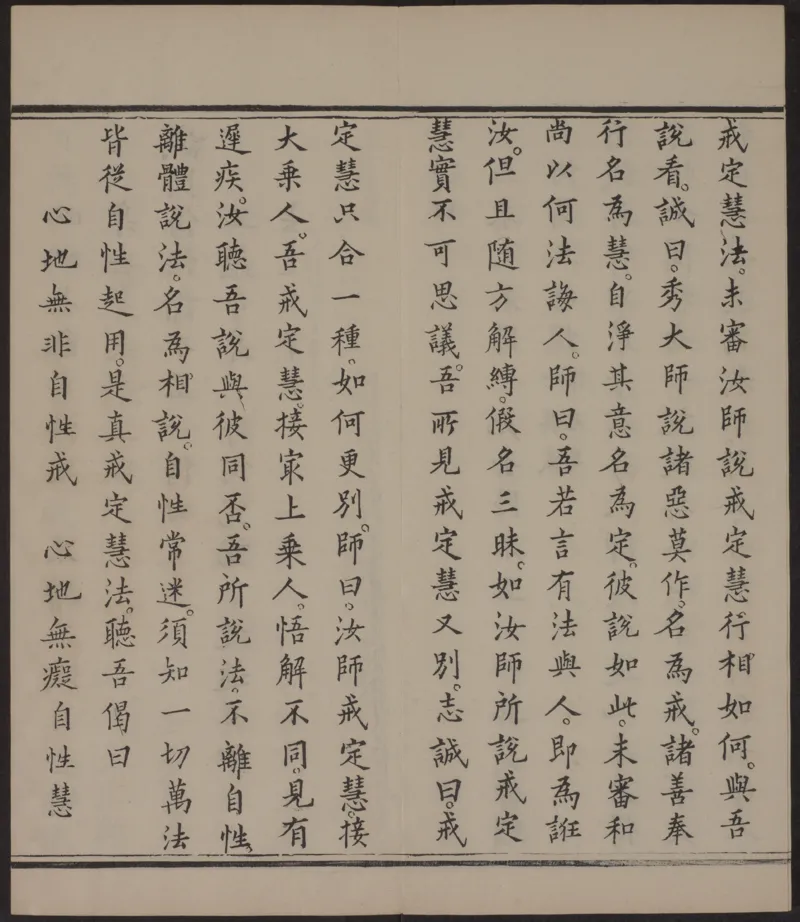 戒定慧法。未審汝師說戒定慧。行相如何。與吾
說看。誠曰。秀大師說諸惡莫作。名為戒。諸善奉
行名為慧。自淨其意名為定。彼說如此。未審和
尚以何法誨人。師曰。吾若言有法與人。即為誑
汝。但且随方解縛。假名三昧。如汝師所說戒定
慧實不可思議。吾所見戒定慧又別。志誠曰。戒
定慧只合一種。如何更別。師曰。汝師戒定慧。接
大乘人。吾戒定慧。接冣上乘人。悟解不同。見有
遲疾。汝聽吾說與彼同否。吾所說法。不離自性。
離體說法。名為相說。自性常迷。須知一切萬法
皆從自性起用。是真戒定慧法。聽吾偈曰
心地無非自性戒　心地無癡自性慧